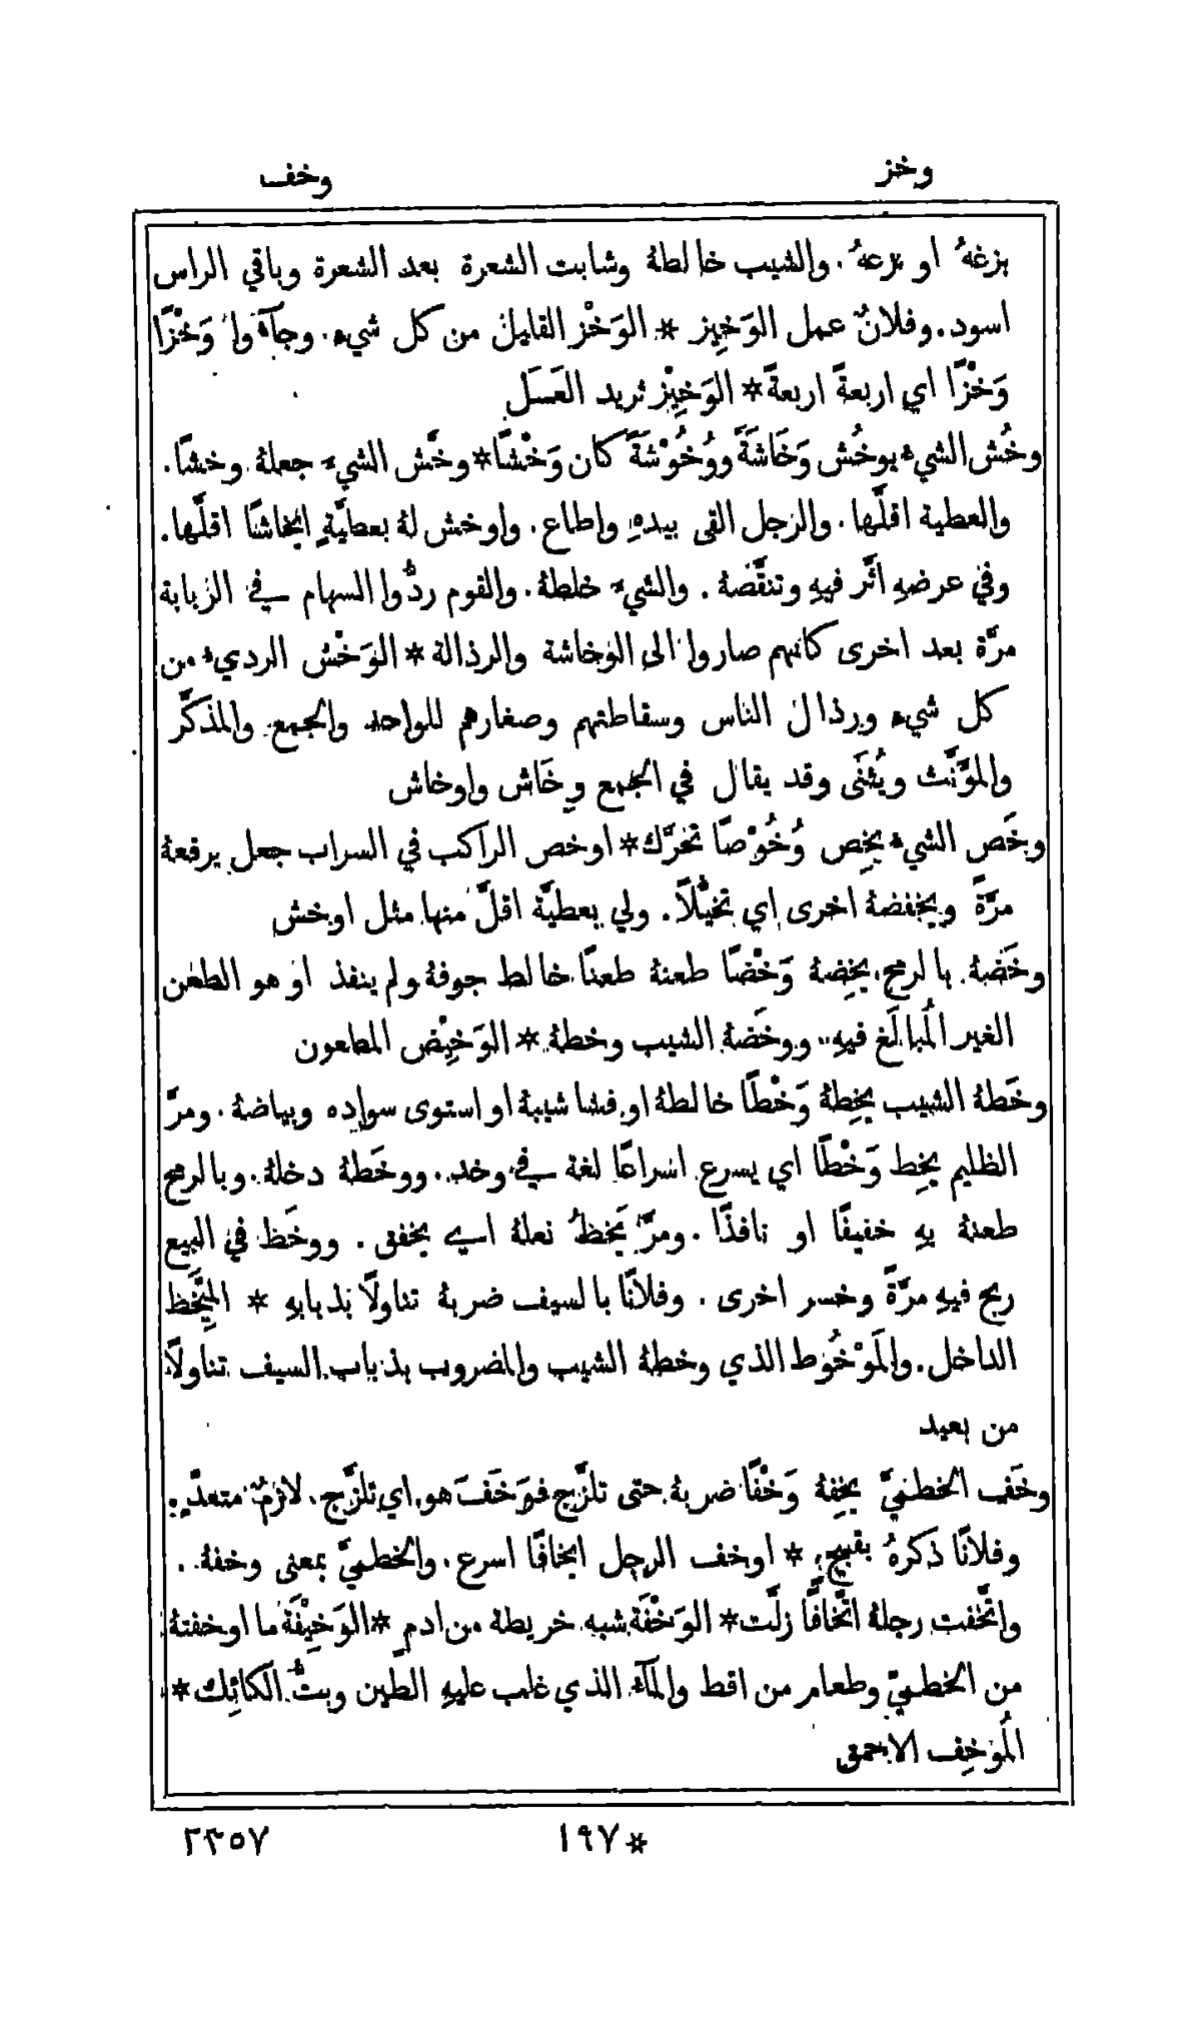 وخز
وخف
بزغهُ او بزعهُ. والشيب خالطهُ وشابت الشعرة بعد الشعرة وباقي الراس
اسود. وفلانٌ عمل الوَخِيز * الوَخْز القليل من كل شيء. وجآءُوا وَخْزًا
وَخْزًا اي اربعةً اربعةً * الوَخِيْز ثريد العَسَل
وخُش الشيءُ يوخُش وَخَاشَةً ووُخُوْشَةً كان وَخْشًا * وخَّش الشيءَ جعلهُ وخشًا.
والعطية اقلَّها. والرجل القى بيدهِ واطاع. واوخش لهُ بعطيَّةٍ ايخاشًا اقلَّها.
وفي عرضهِ اثَّر فيهِ وتنقَّصهُ. والشيءَ خلطهُ. والقوم ردُّوا السهام في الربابة
مرَّة بعد اخرى كانهم صاروا الى الوخاشة والرذالة * الوَخْش الرديءُ من
كل شيء ورذال الناس وسقاطتهم وصغارهم للواحد والجمع والمذكَّر
والمؤَنَّث ويُثنَّى وقد يقال في الجمع وِخَاش واوخاش
وخَص الشيءُ يخِص وُخُوْصًا تحرَّك * اوخص الراكب في السراب جعل يرفعهُ
مرَّةً ويخفضهُ اخرى اي تخيُّلاً. ولي بعطيَّة اقلَّ منها مثل اوخش
وخَضهُ بالرمح يخِضهُ وَخْضًا طعنهُ طعنًا خالط جوفهُ ولم ينفذ او هو الطعن
الغير المُبالَغ فيهِ. ووخَضهُ الشيب وخطهُ * الوَخِيْض المطعون
وخَطهُ الشيب يخِطهُ وَخْطًا خالطهُ او فشا شيبهُ او استوى سواده وبياضهُ. ومرَّ
الظليم يخِط وَخْطًا اي يسرع اسراعًا لغة في وخد. ووخَطهُ دخلهُ. وبالرمح
طعنهُ بهِ خفيفًا او نافذًا. ومرَّ يَخطُ نعلهُ اي يخفق. ووخَط في البيع
ربح فيهِ مرَّةً وخسر اخرى. وفلانًا بالسيف ضربهُ تناولًا بذبابهِ * المِيْخَط
الداخل. والمَوْخُوط الذي وخطهُ الشيب والمضروب بذباب السيف تناولًا
من بعيد
وخَف الخطميَّ يخِفهُ وَخْفًا ضربهُ حتى تلزَّج فوَخَفَ هو اي تلزَّج. لازمٌ متعدٍّ.
وفلانًا ذكرهُ بقبيحٍ * اوخف الرجل ايخافًا اسرع. والخطميَّ بمعنى وخفهُ.
واتَّخفت رجلهُ اتِّخافًا زلَّت * الوَخْفَة شبه خريطة من ادمٍ * الوَخِيْفَة ما اوخفتهُ
من الخطميّ وطعام من اقط والمآء الذي غلب عليهِ الطين وبتُّ الحَائِك *
المُوْخِف الاحمق
*١٩٧
٢٢٥٧